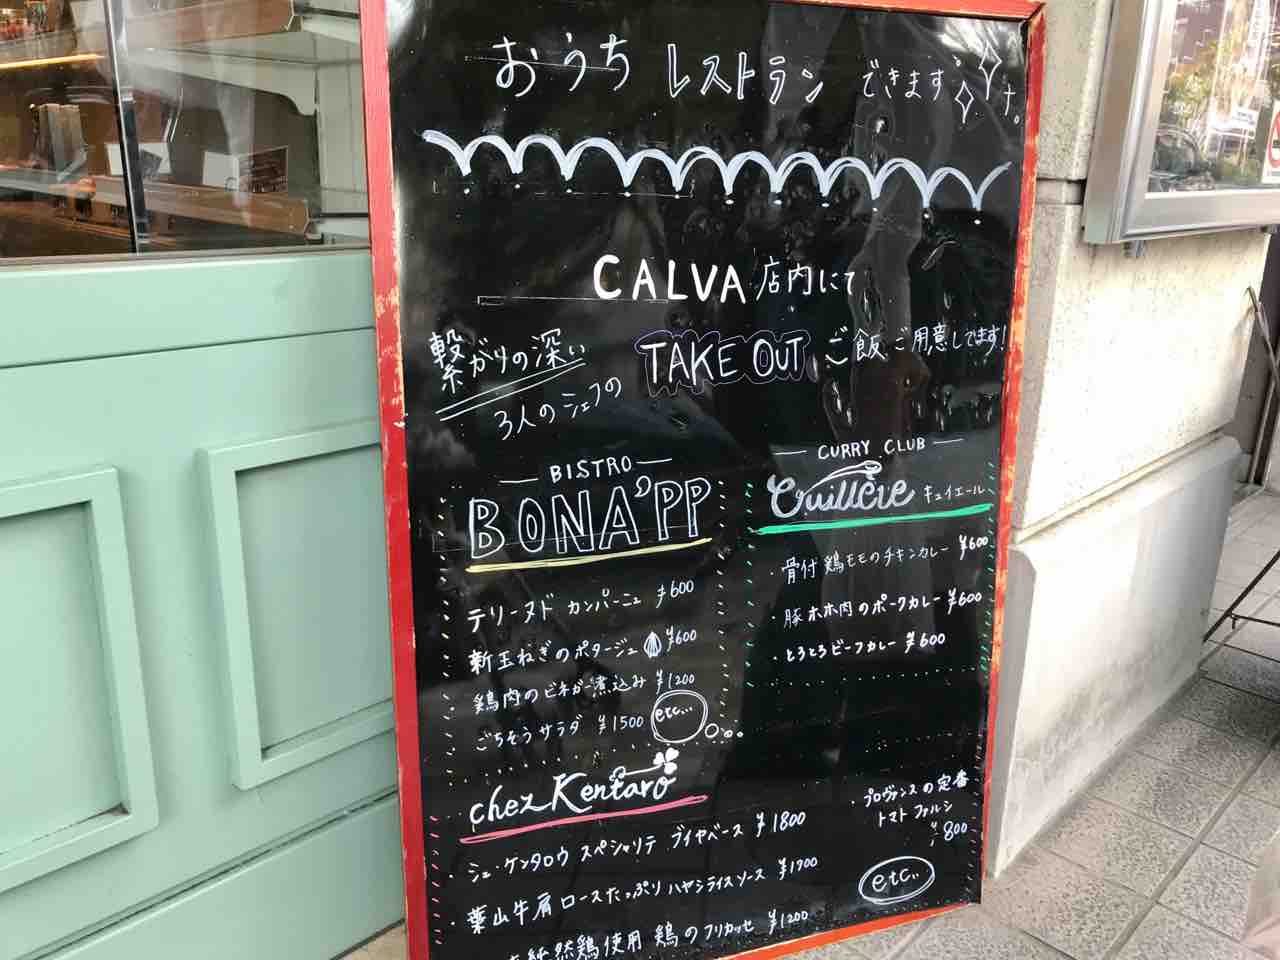 おうち レストラン できます。
CALVA 店内にて
繋がりの深い
3人のシェフの
TAKE OUT ご飯ご用意してます!
BISTRO
BONA'PP
テリーヌド カンパーニュ ¥600
新玉ねぎのポタージュ ¥600
鶏肉のビネガー煮込み ¥1200
ごちそうサラダ ¥1500
etc...
CURRY CLUB
Cuillère キュイエール
・骨付鶏モモのチキンカレー ¥600
・豚ホホ肉のポークカレー ¥600
・とろとろビーフカレー ¥600
chez Kentaro
・シェ・ケンタロウ スペシャリテ ブイヤベース ¥1800
・葉山牛肩ロースたっぷりハヤシライスソース ¥1700
然鶏使用 鶏のフリカッセ ¥1200
・プロヴァンスの定番
トマトファルシ
¥800
etc..